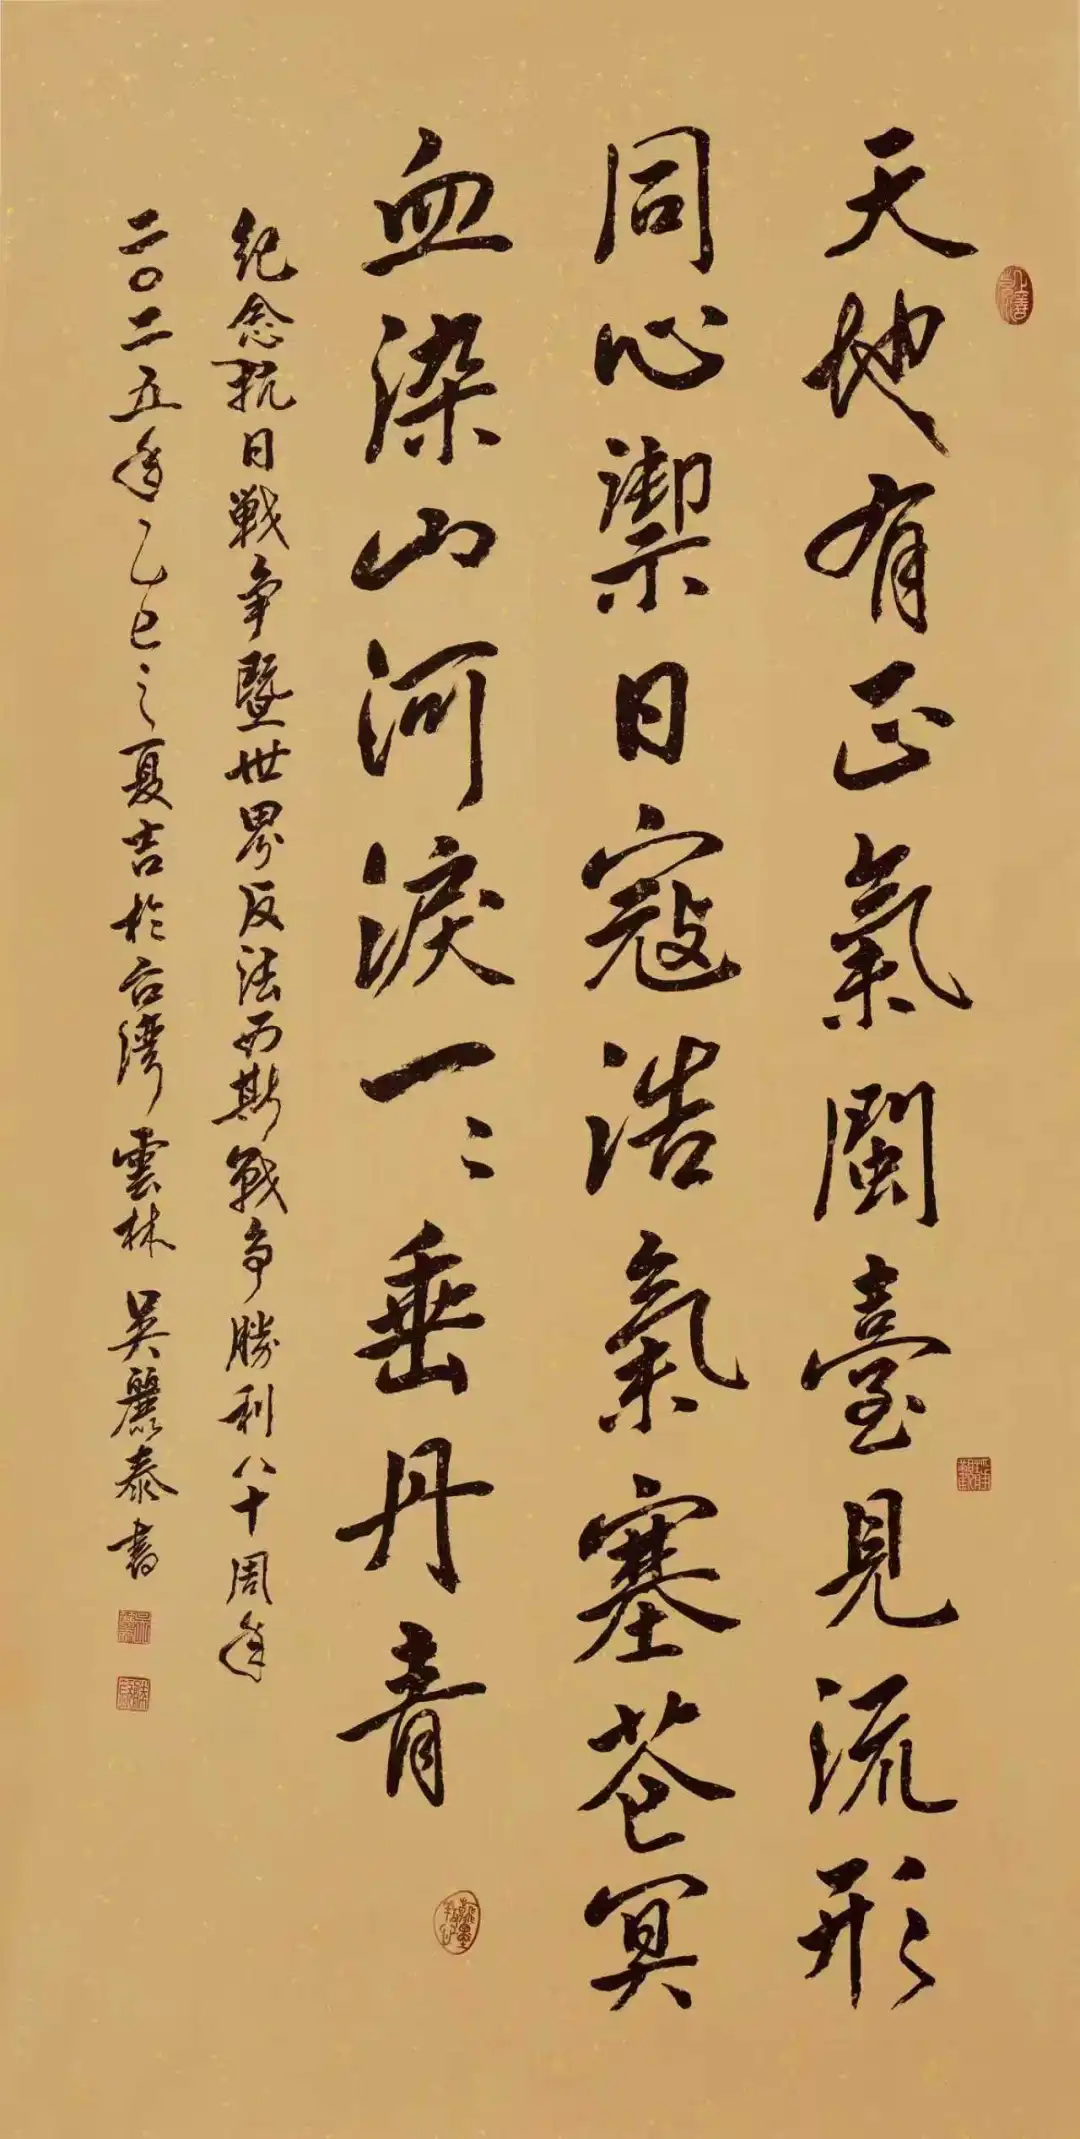 天地有正氣閩臺見流形
同心禦日寇浩氣塞苍冥
血染山河淚一〻垂丹青
紀念抗日戰争暨世界反法西斯戰争勝利八十周年
二〇二五年乙巳之夏吉於台灣雲林吳麗泰書